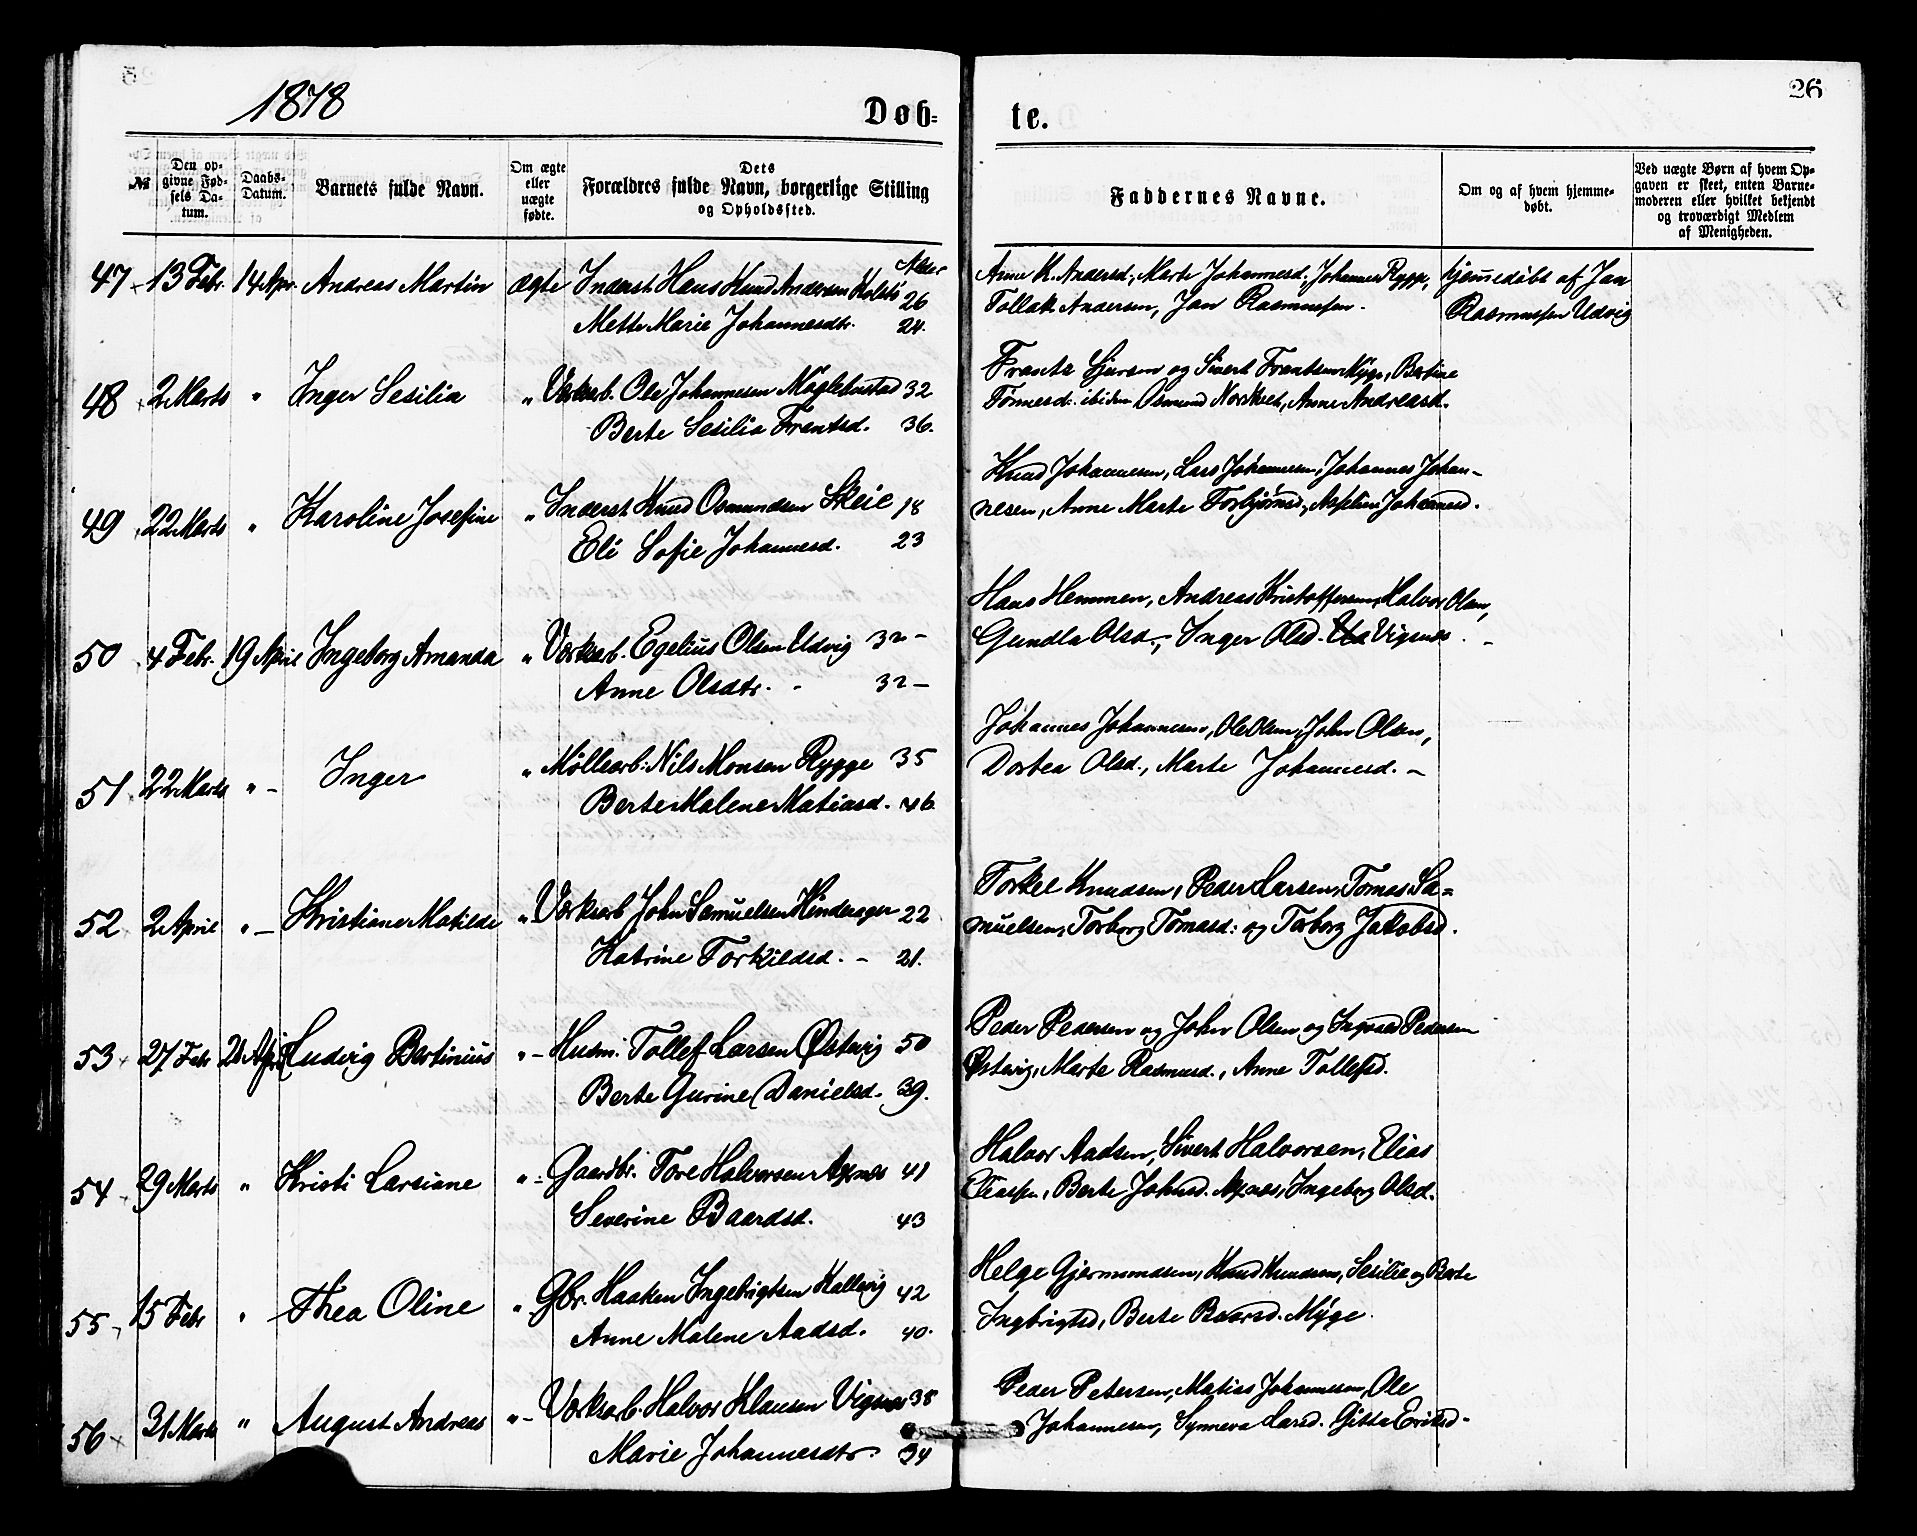 1878
Døb-
te.
26
№
Den op-
givne Fød-
sels Da-
tum.
Daabs-
Datum.
Barnets fulde Navn.
Om ægte
eller
uægte
fødte.
Dets
Forældres fulde Navn, borgerlige Stilling
og Opholdssted.
Faddernes Navne.
Om og af hvem hjemme-
døbt.
Ved uægte Børn af hvem Op-
gaven er skeet, enten Barne-
moderen eller hvilket bekjendt
og troværdigt Medlem
af Menigheden.
Alder
47 13 Febr. 14 Apr. Andreas Martin ægte Inderst Hans Knud Andersen Kolstø 26
Mette Marie Johannesdtr. 24.
Anne K. Andersd., Marte Johannesd., Johannes Rygge,
Tollak Andersen, Jan Rasmussen.
hjemedøbt af Jan
Rasmussen Udvig
48 2 Marts " Inger Sesilia " Værksarb. Ole Johannesen Møglebustad 32
Berte Sesilia Frantsd. 36.
Frants og Sivert Frantsen Myge, Bertine
Tormesd. ibidem Osmund Norkved, Anne Andreasd.
49 22 Marts " Karoline Josefine " Inderst Knud Osmundsen Skeie 18
Eli Sofie Johannesd. 23
Knud Johannesen, Lars Johannesen, Johannes Johan-
nesen, Anne Marte Torbjørnsd., Johannesd.
50 4 Febr. 19 April Ingeborg Amanda " Værksarb. Egelius Olsen Udvig 32 -
Anne Olsdtr. - 32 -
Hans Hemmen, Andreas Kristoffersen, Halvor Olsen,
Gundla Olsd., Inger Olsd. Vigsnes. -
51 22 Marts " - Inger " Møllearb. Nils Monsen Rygge 35
Berte Malene Matiasd. 46.
Johannes Johannesen, Ole Olsen, John Olsen,
Dortea Olsd., Marte Johannesd. -
52 2 April " - Kristiane Matilde " Værksarb. John Samuelsen Hinderager 22
Katrine Torkildsd. - 21.
Torkel Knudsen, Peder Larsen, Tomas Sa-
muelsen, Torborg Tomasd. og Torborg Jakobsd.
53 27 Febr 21 April Ludvig Bertinius " - Husm. Tollef Larsen Østevig 50
Berte Gurine Danielsd. 39.
Peder Pedersen og John Olsen og Ingvald Pedersen
Østevig, Marte Rasmusd., Anne Tollefsd.
54 29 Marts " Kristi Larsiane " - Gaardbr. Tore Halvorsen Axnes 41
Severine Baardsd. 43
Halvor Aadsen, Sivert Halvorsen, Elias
Eliassen, Berte Johnsd. Axnes, Ingeborg Olsd.
55 15 Febr " Thea Oline " Gbr. Haaken Ingebrigtsen Kallevig 42
Anne Malene Aadsd. 40.
Helge Gjermundsen, Knud Knudsen, Sesilie og Berte
Ingbrigtsd, Berte Baarsd. Myge.
56 31 Marts " August Andreas " - Værksarb. Halvor Klausen Vigsnes 38
Marie Johannesdtr. 34
Peder Petersen, Matias Johannesen, Ole
Johannesen, Synneva Larsd. Gitta Eriksd -